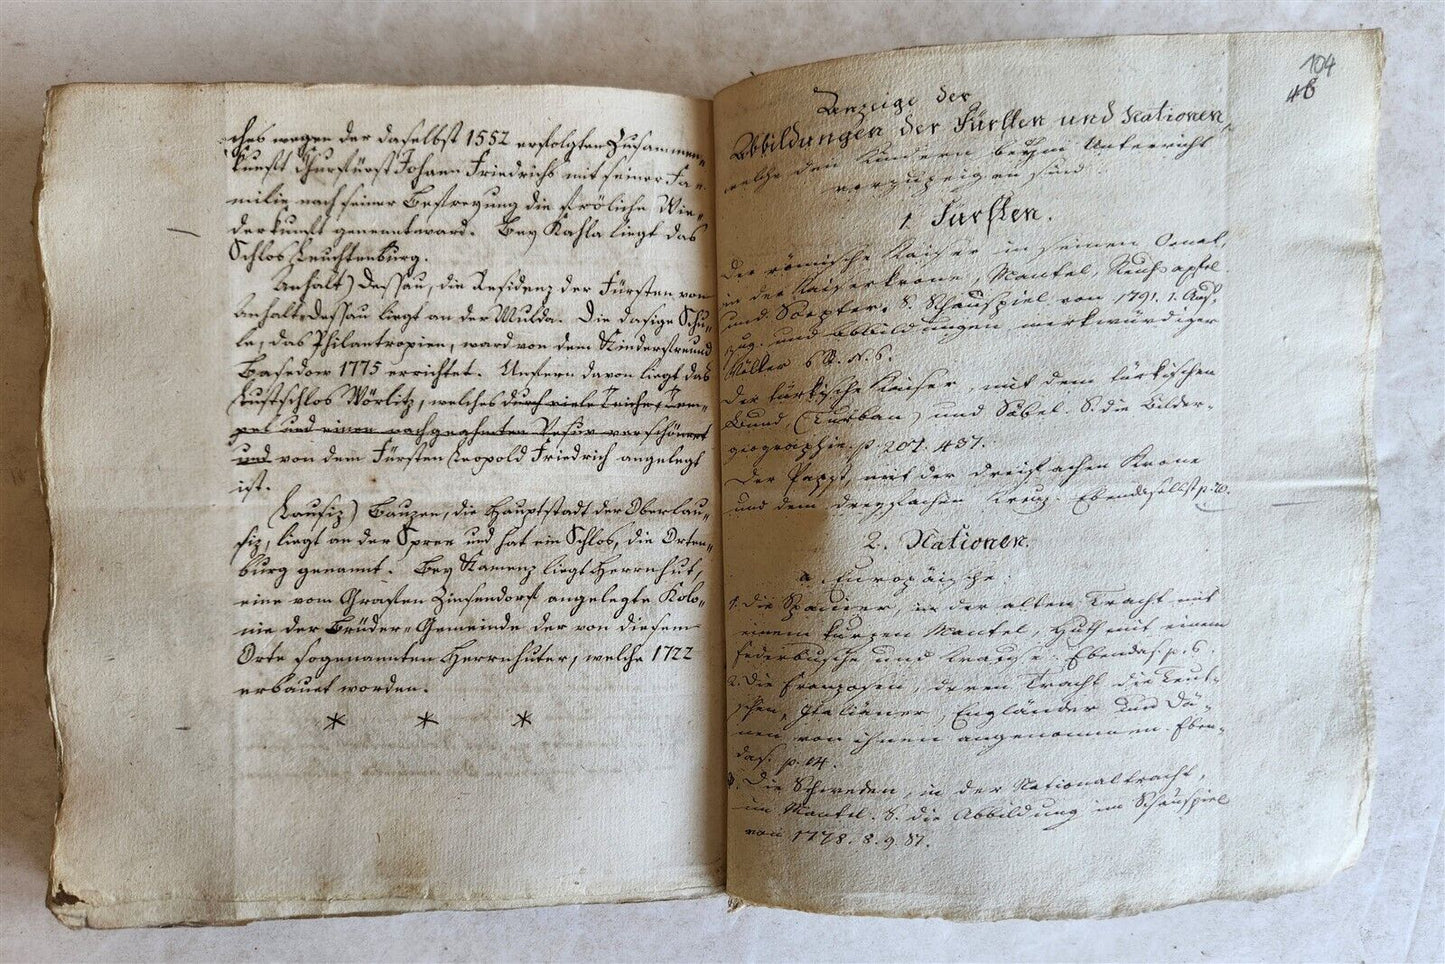 ches wegen der daselbst 1552 erfolgten Zusammen-
kunft Churfürst Johann Friedrichs mit seiner Fa-
milie nach seiner Befreyung die fröliche Wie-
derkunft genennt ward. Bey Kahla liegt das
Schlos Leuchtenburg.
Anhalt) Dessau, die Residenz der Fürsten von
Anhalt-Dessau liegt an der Mulda. Die dasige Schu-
le, das Philantropien, ward von dem Kinderfreund
Basedow 1775 errichtet. Unfern davon liegt das
Lustschlos Wörlitz, welches durch viele Teiche, Tem-
pel und einen nachgeahmten Vesuv verschönert
und von dem Fürsten Leopold Friedrich angelegt
ist.
Lausiz) Bauzen, die Hauptstadt der Oberlau-
siz, liegt an der Spree und hat ein Schlos, die Orten-
burg genannt. Bey Kamenz liegt Herrnhut,
eine vom Grafen Zinsendorf angelegte Kolo-
nie der Brüder-Gemeinde der von diesem
Orte sogenannten Herrnhuter, welche 1722
erbauet worden.
* * *
104
46
Anzeige der
Abbildungen der Fürsten und Nationen,
welche den Kindern beym Unterricht
vorzuzeigen sind.
1. Fürsten.
Der römische Kaiser in seinem Ornat,
in der Kaiserkrone, Mantel, Reichsapfel
und Scepter. S. Schauspiel von 1791. 1. Aus-
zug. und Abbildungen merkwürdiger
Völker S. N. 6.
Der türkische Kaiser mit dem türkischen
Bund (Turban) und Säbel. S. die Bilder-
geographie. p. 207. 437.
Der Papst, mit der dreifachen Krone
und dem dreyfachen Kreuz. Ebendaselbst p. 20.
2. Nationen.
a. Europäische:
1. Die Spanier, in der alten Tracht mit
einem kurzen Mantel, Huth mit einem
Federbusche und Krause. Ebendas. p. 6.
2. Die Franzosen, deren Tracht die Teut-
schen, Italiäner, Engländer und Dä-
nen von ihnen angenommen. Eben-
das. p. 14.
Die Schweden, in der Nationaltracht,
im Mantel. S. die Abbildung im Schauspiel
von 1778. 8. 9. St.